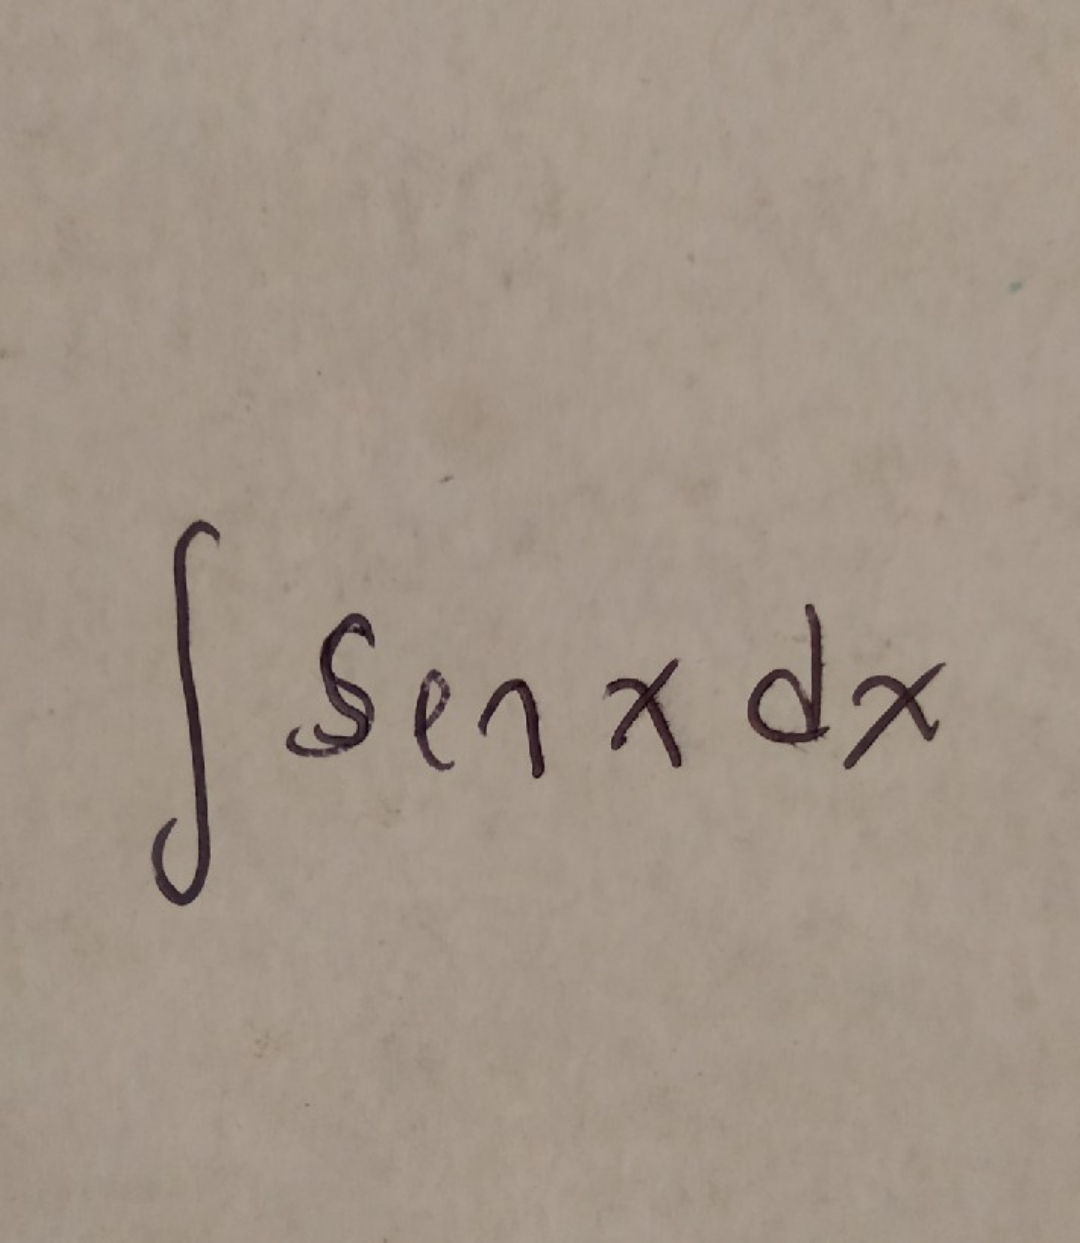 ∫ sen x dx